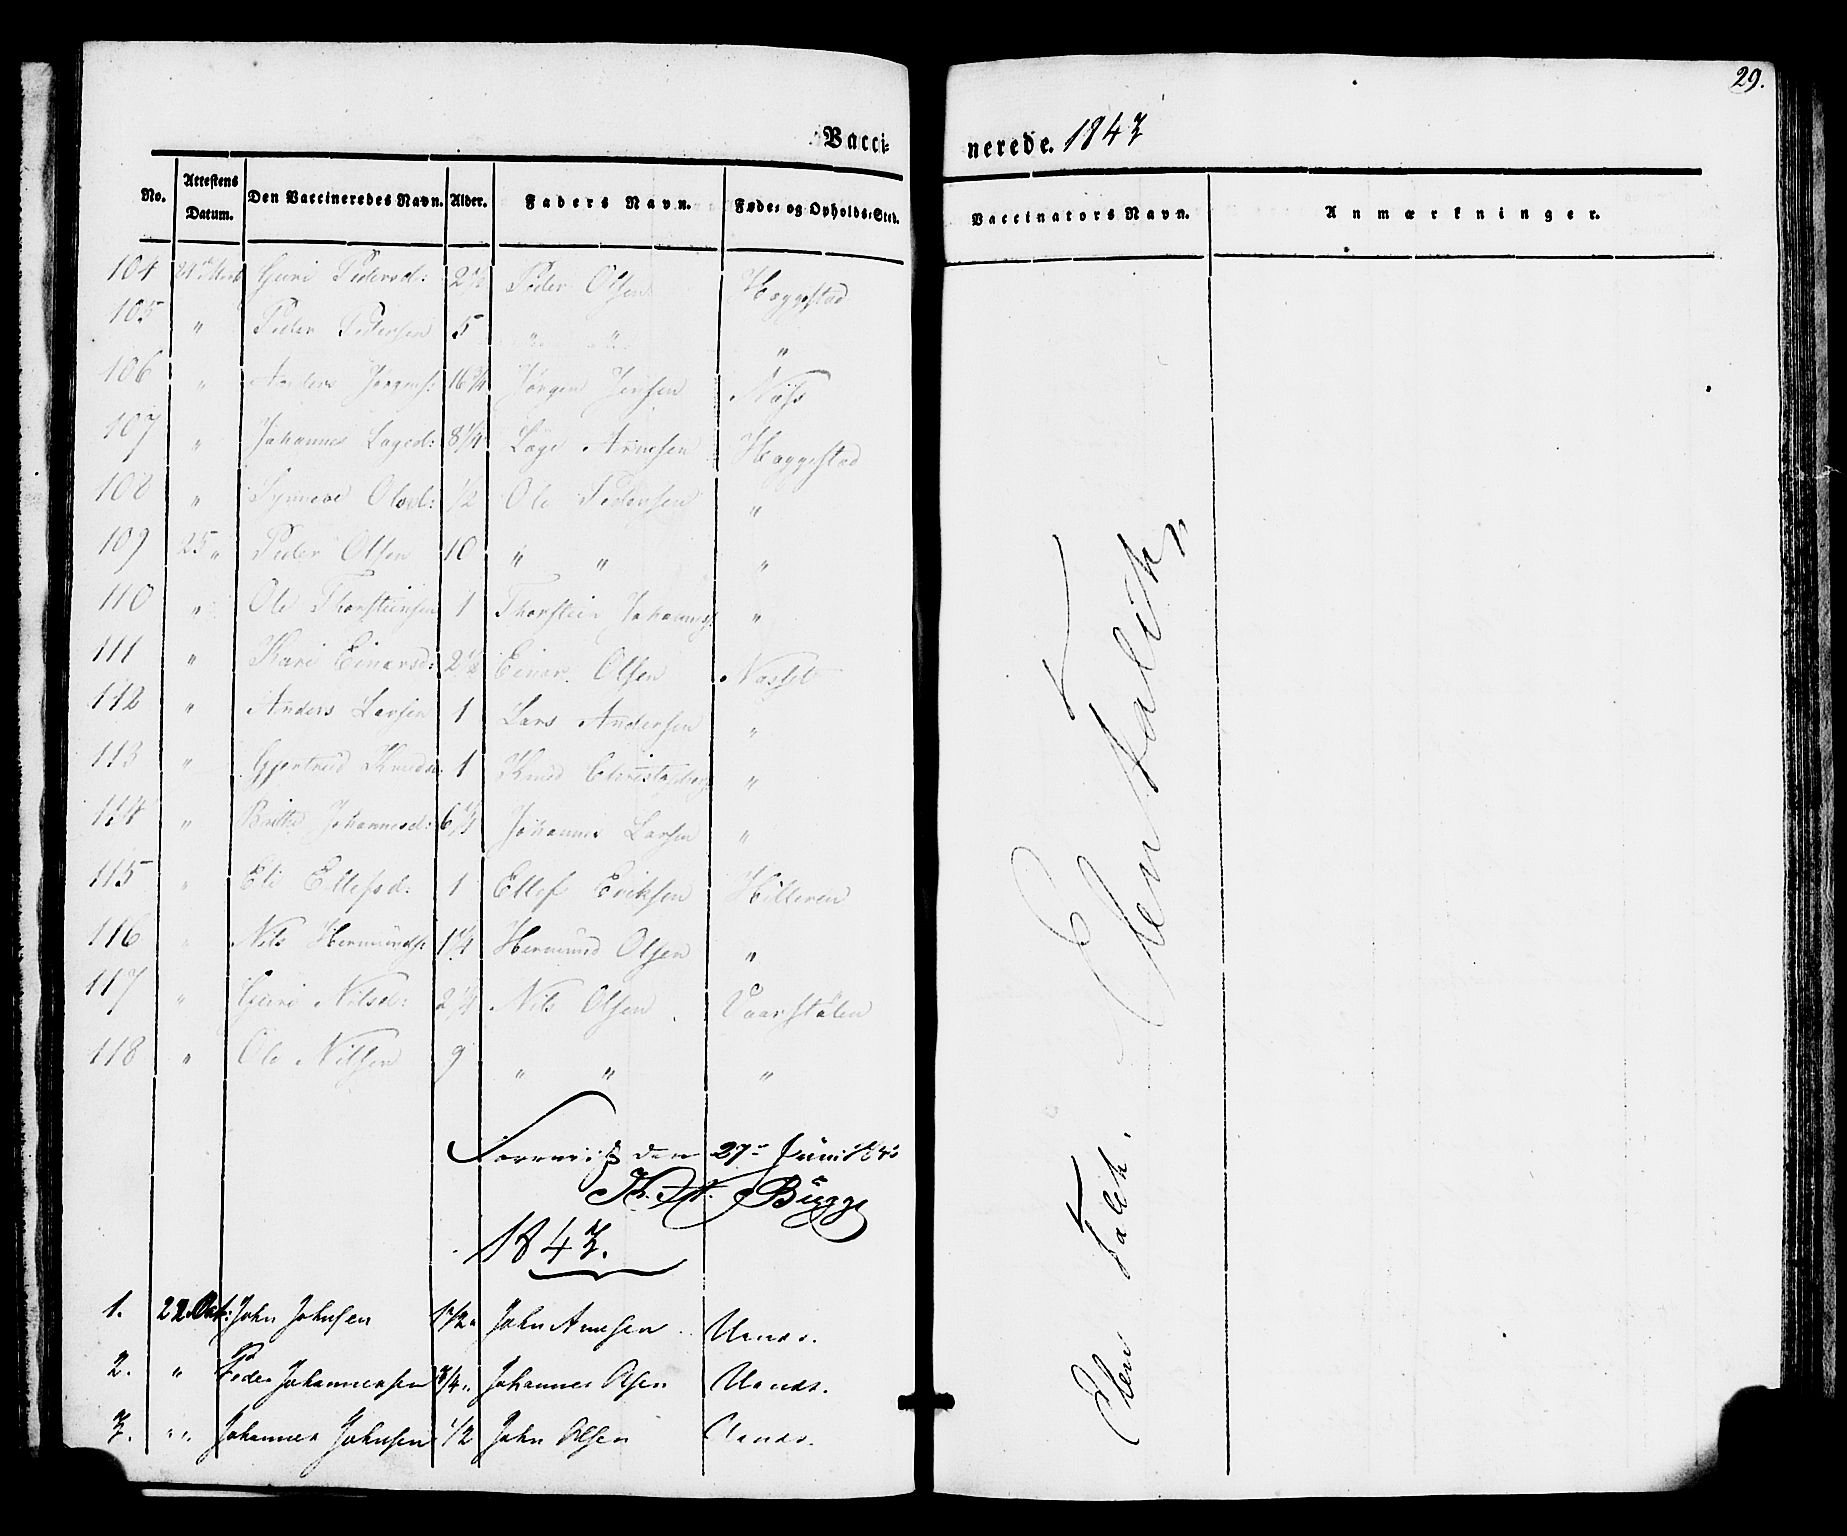 29.
Vaccinerede. 1843
No. Attestens Datum. Den Vaccineredes Navn. Alder. Faders Navn. Føde- og Opholds-Sted. Vaccinators Navn. Anmærkninger.
104 24 Guri Pedersd: 2 1/2 Peder Olsen Haggestad
105 " Peder Pedersen 5 " " "
106 " Anders Jørgens: 16 3/4 Jørgen Jensen Næss
107 " Johannes Laged: 8 1/4 Lage Arnesen Haggestad
108 " Synneve Olsd: 1/2 Ole Pedersen "
109 25 " Peder Olsen 10 " " "
110 " Ole Thorsteinsen 1 Thorstein Johannes: "
111 " Kari Einarsd: 2 1/2 Einar Olsen Nasset
112 " Anders Larsen 1 Lars Andersen "
113 " Gjertrud Knudsd: 1 Knud "
114 " Britha Johannesd: 6 1/4 Johannes Larsen "
115 " Eli Ellefsd. 1 Ellef Eriksen Hilleren
116 " Nils Hermunds: 1 1/4 Hermund Olsen "
117 " Guri Nilsd: 2 1/4 Nils Olsen Vaarstølen
118 " Ole Nilsen 9 " " "
den 27 Juni 1843
Bugge
1843.
1. 22 Oct: John Johnsen 1 1/2 John Arnesen
2. " Peder Johannessen 3/4 Johannes Olsen
3. " " Johannes Johnsen 1/2 John Olsen
Elen Falch
Elen Falch.